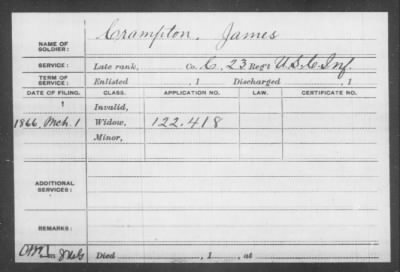 NAME OF SOLDIER: Crampton, James
SERVICE: Late rank, Co. C, 23 Reg't U.S.C. Inf.
TERM OF SERVICE: Enlisted , 1 Discharged , 1
DATE OF FILING. CLASS. APPLICATION NO. LAW. CERTIFICATE NO.
1 Invalid,
1866, Mch. 1 Widow, 122.418
Minor,
ADDITIONAL SERVICES:
REMARKS:
Died , 1 , at